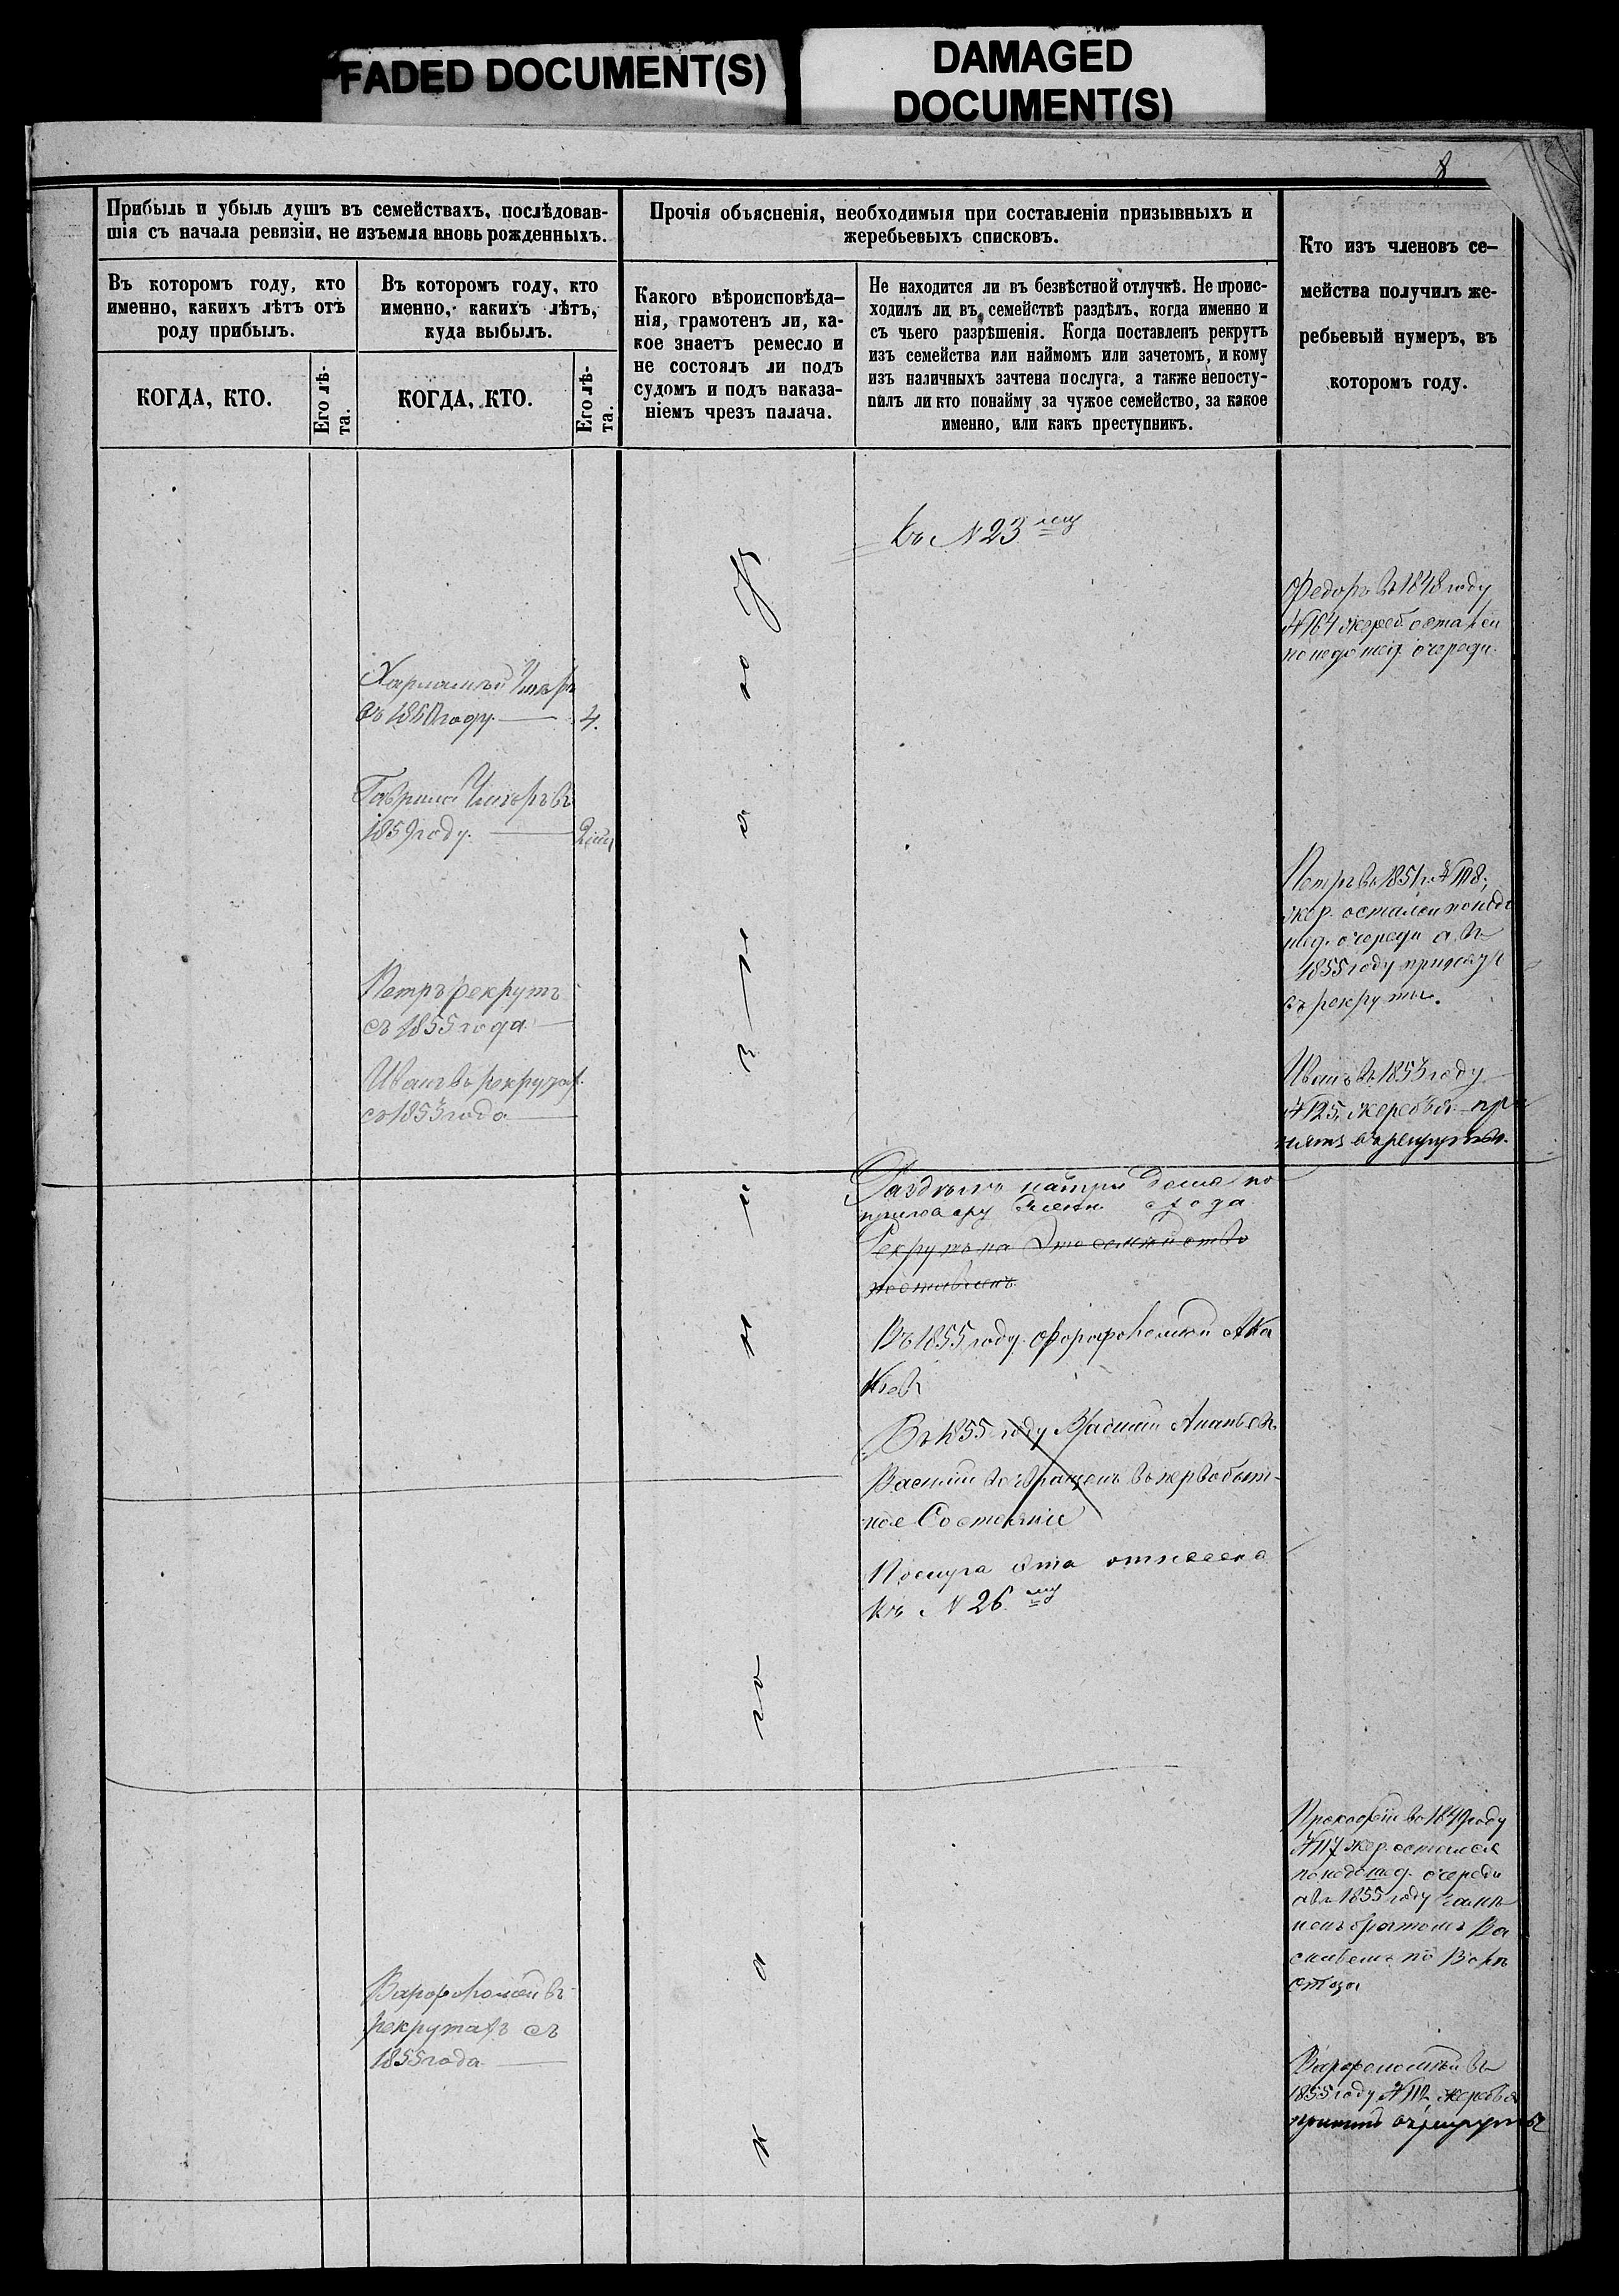 FADED DOCUMENT(S)
DAMAGED
DOCUMENT(S)
8
Прибыль и убыль душъ въ семействахъ, послѣдовав-
шія съ начала ревизіи, не изъемля вновь рожденныхъ.
Въ которомъ году, кто
именно, какихъ лѣтъ отъ
роду прибылъ.
КОГДА, КТО.
Его лѣ-
та.
Въ которомъ году, кто
именно, какихъ лѣтъ,
куда выбылъ.
КОГДА, КТО.
Его лѣ-
та.
Прочія объясненія, необходимыя при составленіи призывныхъ и
жеребьевыхъ списковъ.
Какого вѣроисповѣда-
нія, грамотенъ ли, ка-
кое знаетъ ремесло и
не состоялъ ли подъ
судомъ и подъ наказа-
ніемъ чрезъ палача.
Не находится ли въ безвѣстной отлучкѣ. Не проис-
ходилъ ли въ семействѣ раздѣлъ, когда именно и
съ чьего разрѣшенія. Когда поставленъ рекрутъ
изъ семейства или наймомъ или зачетомъ, и кому
изъ наличныхъ зачтена послуга, а также непосту-
пилъ ли кто понайму за чужое семейство, за какое
именно, или какъ преступникъ.
Кто изъ членовъ се-
мейства получилъ же-
ребьевый нумеръ, въ
которомъ году.
Къ N 23 му
Федоръ въ 1848 году
N 164 жереб. остался
понедошед. очереди.
Харлампій Умеръ
въ 1860 году 4.
Гаврило Умеръ въ
1859 году. 2
Петръ въ 1851 г. N 118;
жер. остался понедо
шед. очереди а въ
1855 году принятъ
въ рекруты.
Петръ рекрутъ
съ 1855 года
Иванъ въ рекрутах.
съ 1853 года
Иванъ въ 1853 году
N 125, жеребья при
нятъ в рекруты.
Раздѣлъ на три дома по
приговору схода
Рекрутъ на Это семейство
поставленъ
Въ 1855 году Форофоломей Ака
кіевъ
Въ 1855 году Василій Ананьевъ
Василій возвращенъ въ первобыт-
ное Состояніе
Послуга Эта отнесена
къ N 26 му
Прокофій въ 1849 году
N 117 жер. остался
понедошед. очереди
а въ 1855 году замѣ
ненъ братомъ Ва
Варфоломей въ
рекрутахъ съ
1855 года
Варфоломей въ
1855 году N 112 жеребья
принятъ в рекруты